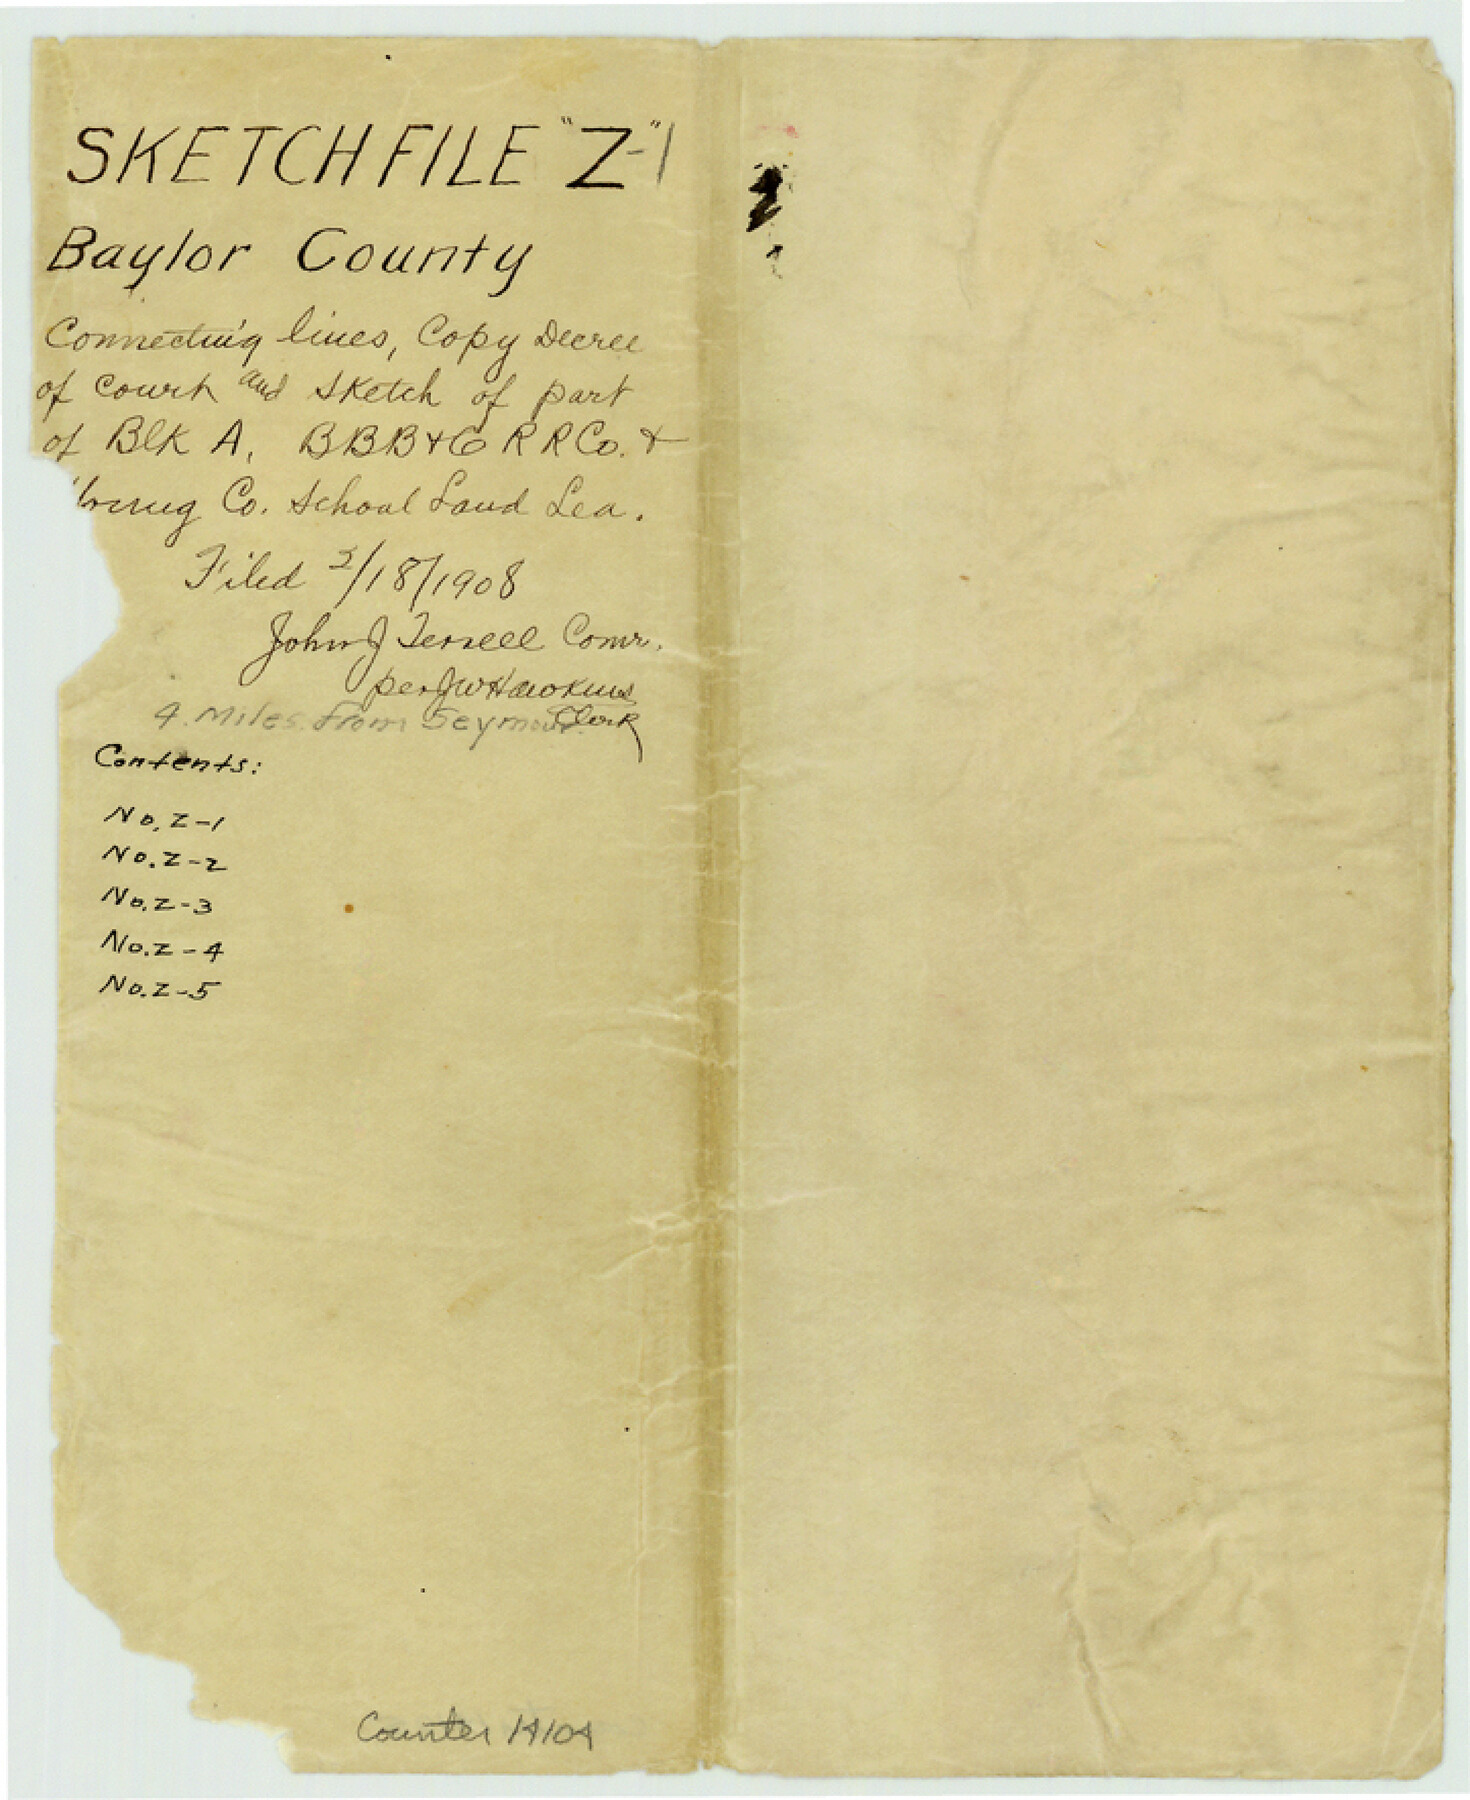 SKETCH FILE "Z"-1
Baylor County
Connecting lines, Copy Decree
of Court and Sketch of part
of Blk A, BBB+C RR Co. &
Co. School Land Lea.
Filed /18/1908
John J Terrell Comr.
per JW Hawkins
Clerk
4. Miles from Seymour
Contents:
No. Z-1
No. Z-2
No. Z-3
No. Z-4
No. Z-5
Counter 14104